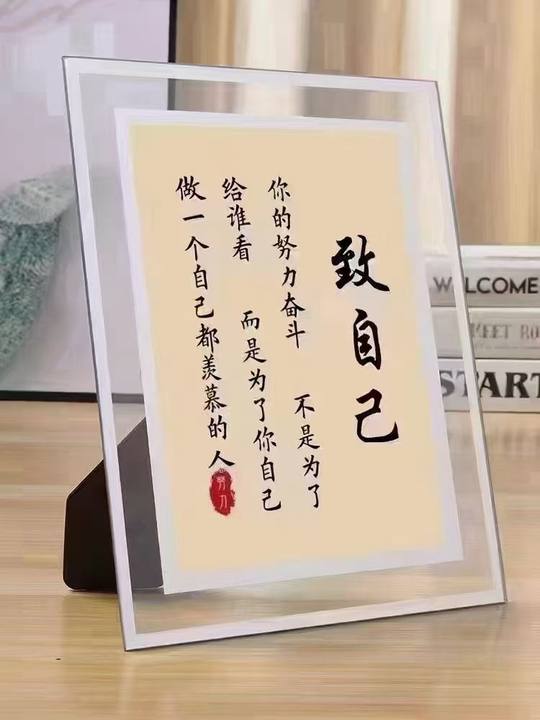 致自己
你的努力奋斗 不是为了
给谁看 而是为了你自己
做一个自己都羡慕的人
努力
WELCOME
START